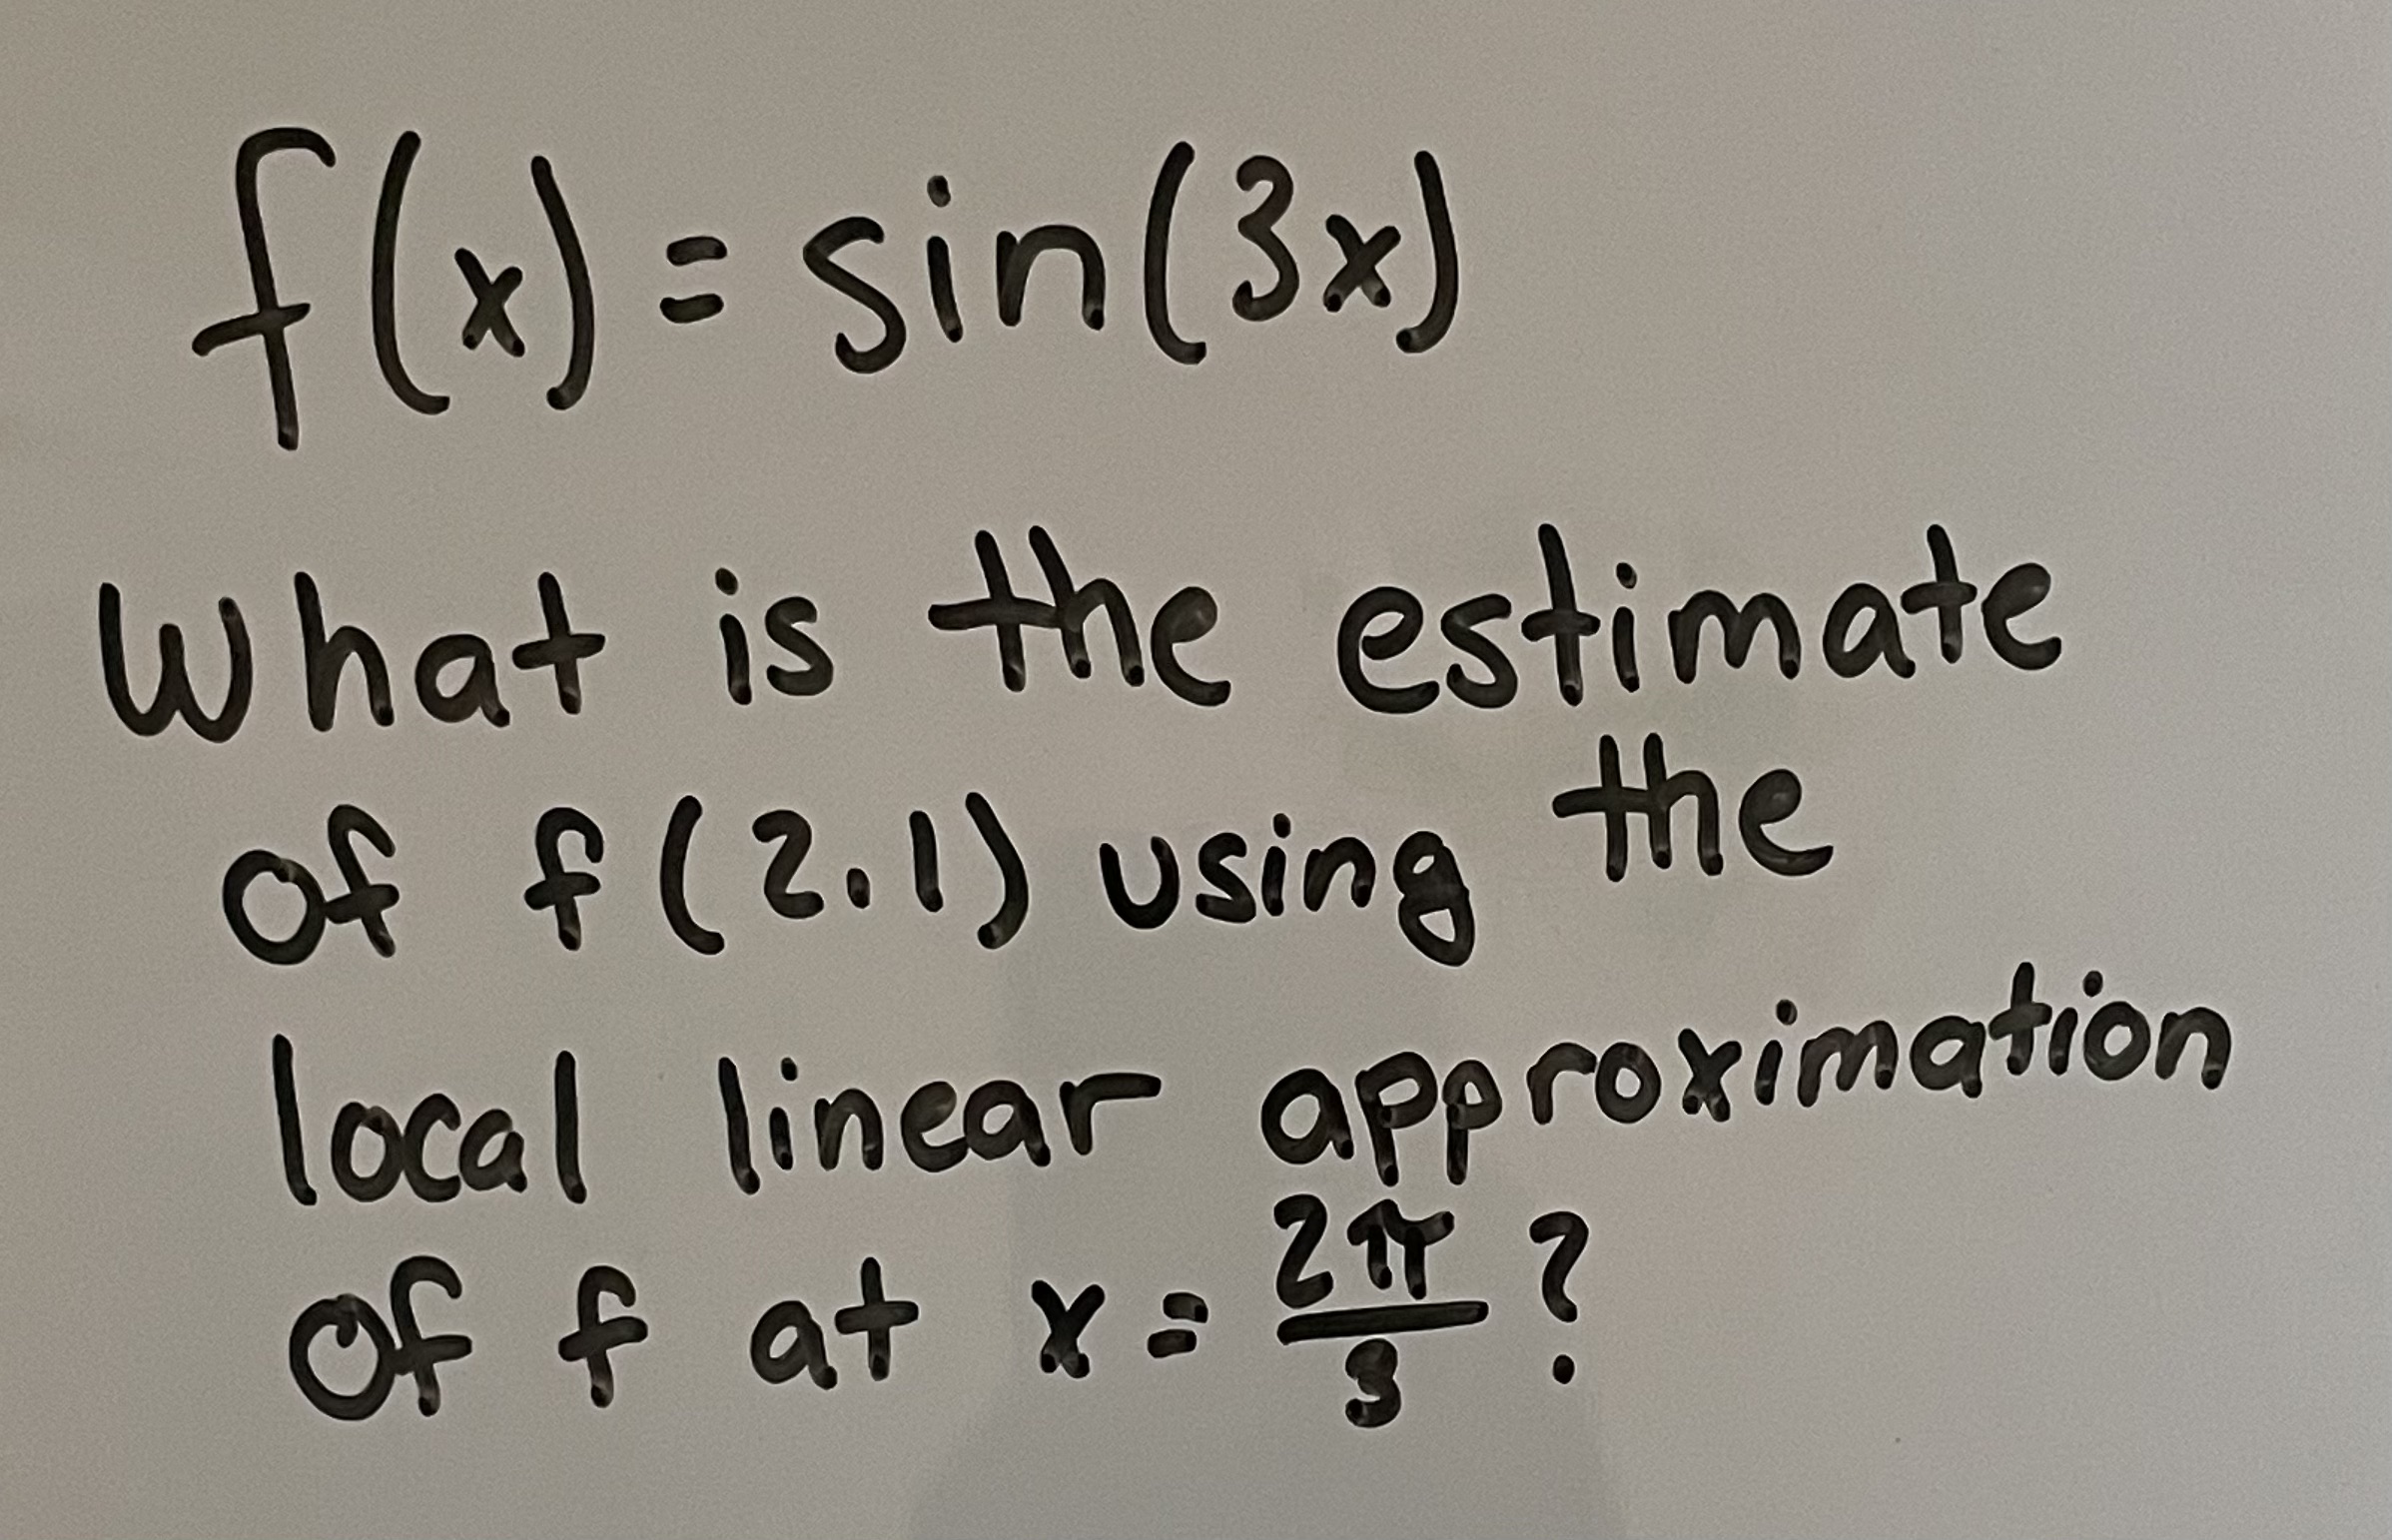 f(x) = sin(3x)
What is the estimate
of f(2.1) using the
local linear approximation
of f at x = 2π/3 ?